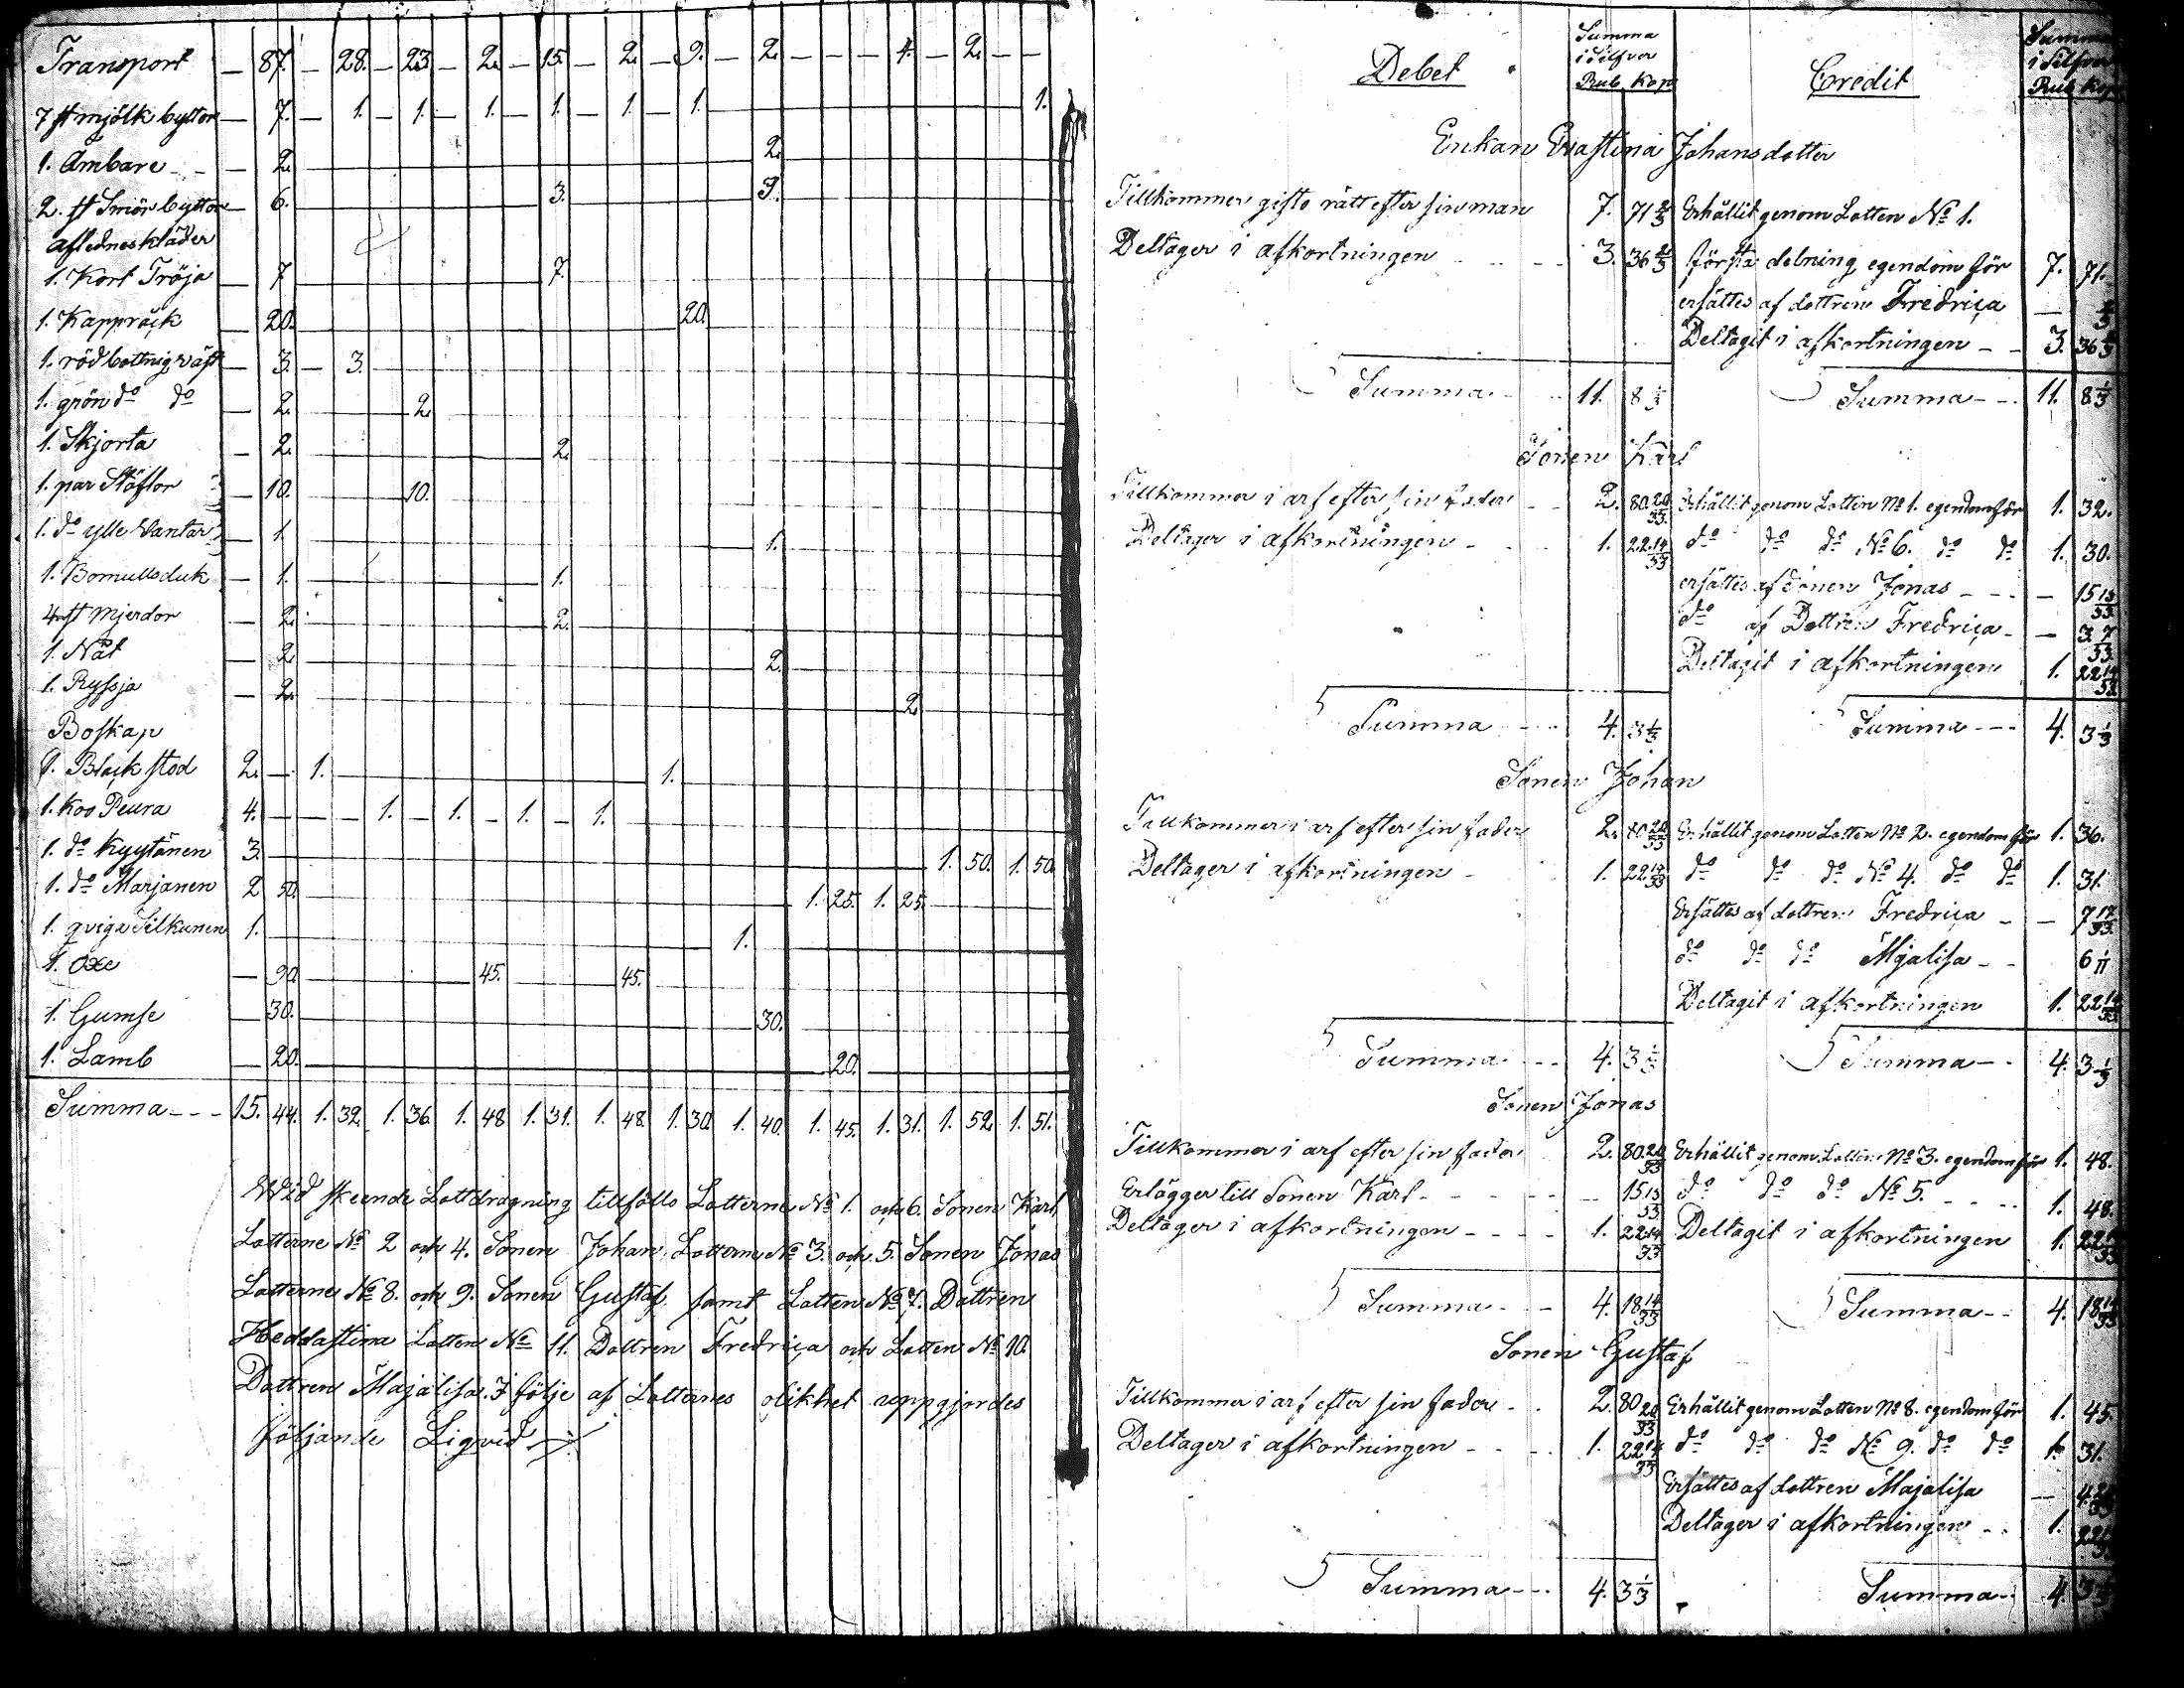 Transport — 87. — 28. — 23 — 2. — 15. — 2. — 9. — 2. — — — 4. — 2. — —
7 st mjölk byttor — 7. — 1. — 1. — 1. — 1. — 1. — 1. — 1.
1. Ämbare — 2. — 2.
2. st Smör byttor — 6. — 3. — 3.
aflidnes kläder
1. Kort Tröja — 7 — 7.
1. Kappråck — 20. — 20.
1. röd bottnig väst — 3. — 3.
1. grön do do — 2. — 2.
1. Skjorta — 2. — 2.
1. par Stöflor — 10. — 10.
1. do ylle Vantar — 1. — 1.
1. Bomullsduk — 1. — 1.
4 st Mjerdor — 2. — 2.
1. Nät — 2. — 2.
1. Ryssja — 2. — 2
Boskap
1. Black stod 2. — 1. — 1.
1. Koo Peura 4. — — — 1. — 1. — 1. — 1.
1. do Kyytänen 3. — 1. 50. 1. 50.
1. do Marjanen 2 50. — 1. 25. 1. 25.
1. qviga Silkunen 1. — 1.
1. Oxe — 90. — 45. — 45.
1. Gumse — 30. — 30.
1. Lamb — 20. — 20.
Summa - - - 15. 44. 1. 32. 1. 36. 1. 48 1. 31. 1. 48. 1. 30. 1. 40. 1. 45. 1. 31. 1. 52. 1. 51.
Wid skeende Lottdragning tillfölls Lotterne No 1. och 6. Sonen Karl
Lotterne No 2 och 4. Sonen Johan, Lotterne No 3. och 5. Sonen Jonas
Lotterne No 8. och 9. Sonen Gustaf, samt Lotten No 7. Dottren
Heddastina Lotten No 11. Dottren Fredrica och Lotten No 10.
Dottren Majalisa. I följe af Lotternes olikhet uppgjordes
följande Liqvid
Debet Summa i Silfver Rub Kop Credit Summa i Silfver Rub Kop
Enkan Johansdotter
Tillkommer gifto rätt efter sin man 7. 71 2/3 Erhållit genom Lotten No 1.
Deltager i afkortningen - - - 3. 36 2/3 första delning egendom för 7. 71.
ersättes af dottren Fredrica — 2/3
Deltagit i afkortningen - - 3. 36 2/3
Summa - - 11. 8 1/3 Summa - - 11. 8 1/3
Sonen Karl
Tillkommer i arf efter sin fader - - 2. 80 20/33 Erhållit genom Lotten No 1. egendom för 1. 32.
Deltager i afkortningen - - - 1. 22 14/33 do do do No 6. do do 1. 30.
ersättes af Sonen Jonas - - - — 15 13/33
do af Dottren Fredrica - — 3 7/33
Deltagit i afkortningen 1. 22 14/33
Summa - - - 4. 3 1/3 Summa - - - 4. 3 1/3
Sonen Johan
Tillkommer i arf efter sin fader 2. 80 20/33 Erhållit genom Lotten No 2. egendom för 1. 36.
Deltager i afkortningen - 1. 22 14/33 do do do No 4. do do 1. 31.
Ersättes af dottren Fredrica - — 7 17/33
do do do Majalisa - - 6 1/11
Deltagit i afkortningen 1. 22 14/33
Summa - - - 4. 3 1/3 Summa - - 4. 3 1/3
Sonen Jonas
Tillkommer i arf efter sin fader 2. 80 20/33 Erhållit genom Lotten No 3. egendom för 1. 48.
Erlägger till Sonen Karl - - - - - 15 13/33 do do do No 5. - - - 1. 48.
Deltager i afkortningen - - - - 1. 22 14/33 Deltagit i afkortningen 1. 22 14/33
Summa - - 4. 18 14/33 Summa - - 4. 18 14/33
Sonen Gustaf
Tillkommer i arf efter sin fader - - 2. 80 20/33 Erhållit genom Lotten No 8. egendom för 1. 45.
Deltager i afkortningen - - - - 1. 22 14/33 do do do No 9. do do 1. 31.
Ersättes af dottren Majalisa
Deltager i afkortningen - - 1.
Summa - - - 4. 3 1/3 Summa - - 4. 3 1/3